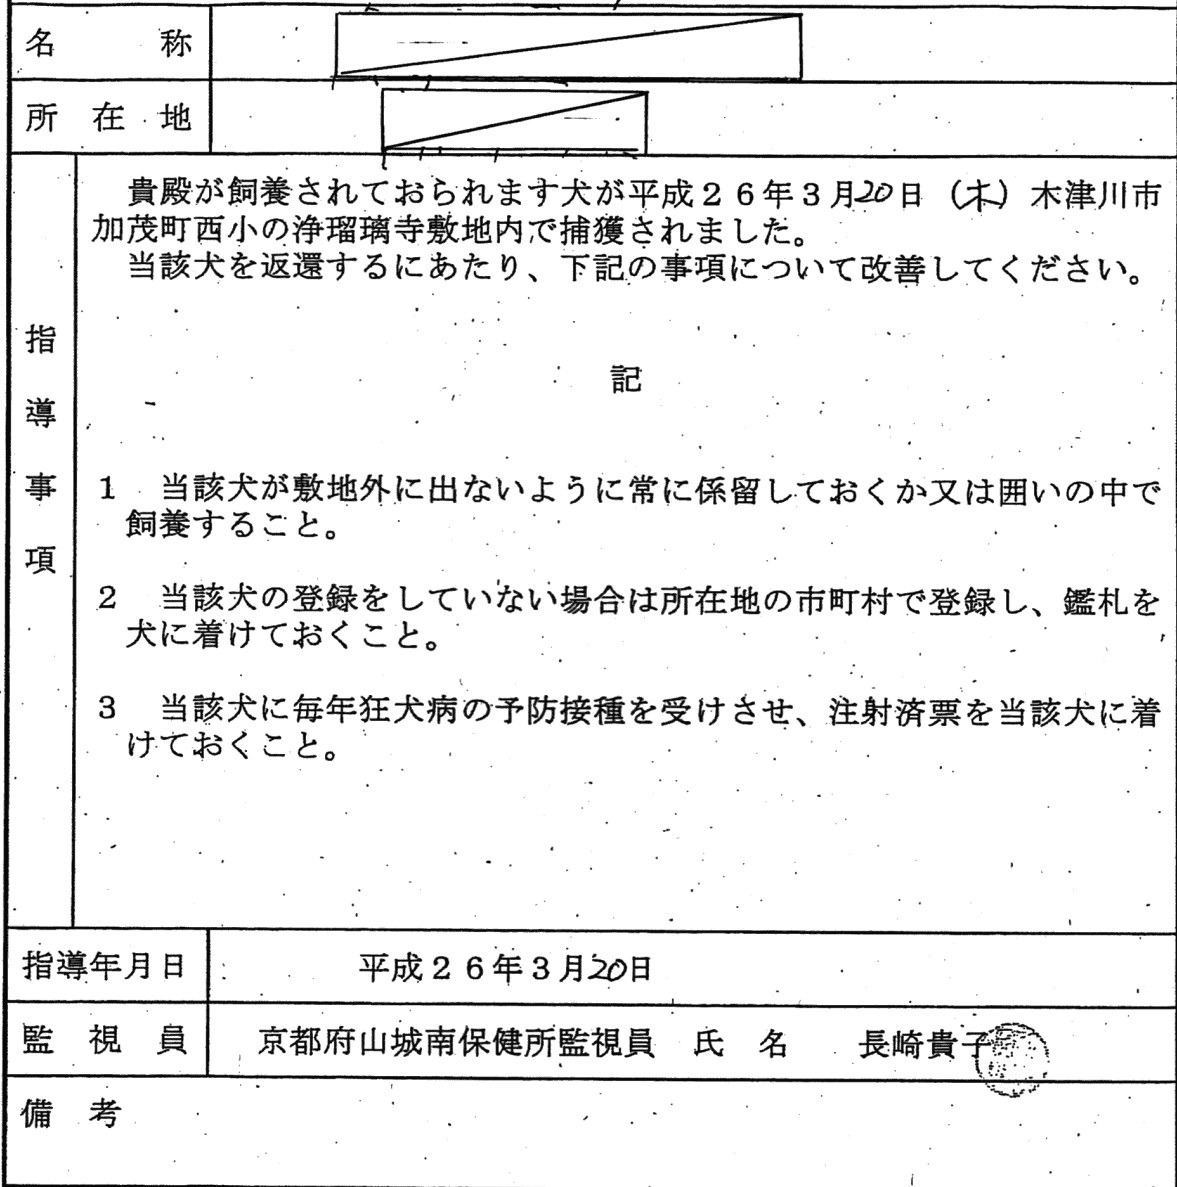 名称
所在地
貴殿が飼養されておられます犬が平成２６年３月20日（木）木津川市
加茂町西小の浄瑠璃寺敷地内で捕獲されました。
当該犬を返還するにあたり、下記の事項について改善してください。
記
指導事項
１　当該犬が敷地外に出ないように常に係留しておくか又は囲いの中で
飼養すること。
２　当該犬の登録をしていない場合は所在地の市町村で登録し、鑑札を
犬に着けておくこと。
３　当該犬に毎年狂犬病の予防接種を受けさせ、注射済票を当該犬に着
けておくこと。
指導年月日　平成２６年３月20日
監視員　京都府山城南保健所監視員　氏名　長崎貴子
備考